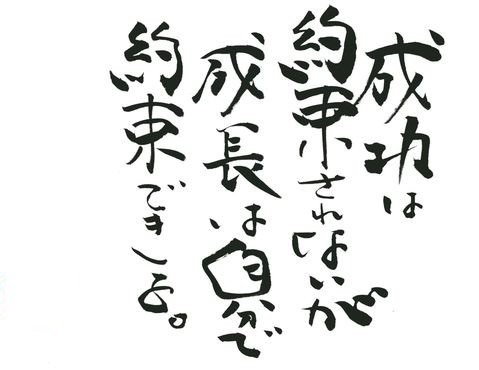 成功は
約束されないが
成長は自分で
約束できる。